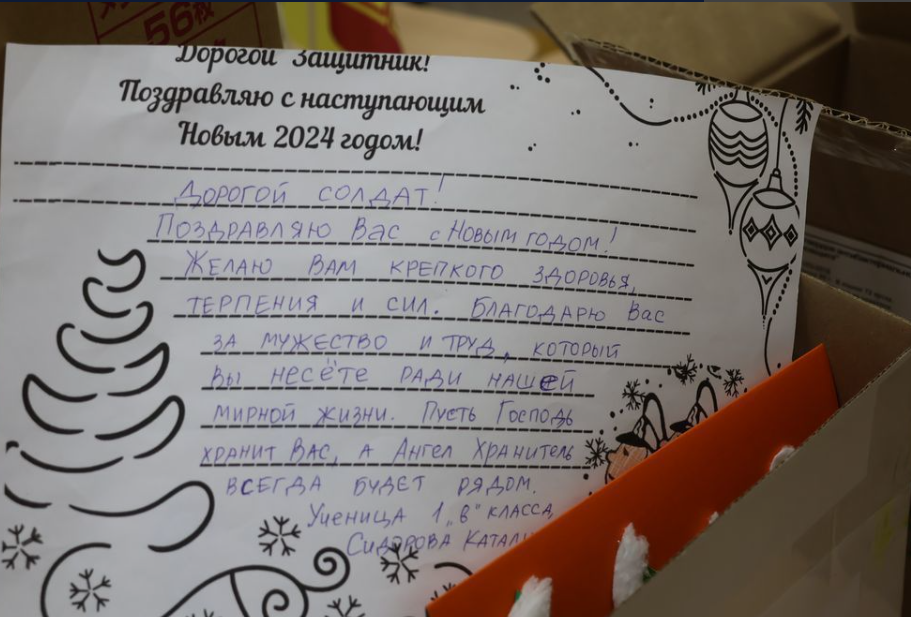 56枚
Дорогой Защитник!
Поздравляю с наступающим
Новым 2024 годом!
Дорогой солдат!
Поздравляю Вас с Новым годом!
Желаю вам крепкого здоровья,
терпения и сил. Благодарю Вас
за мужество и труд, который
вы несёте ради нашей
мирной жизни. Пусть Господь
хранит Вас, а Ангел Хранитель
всегда будет рядом.
Ученица 1 „в" класса,
Сидорова